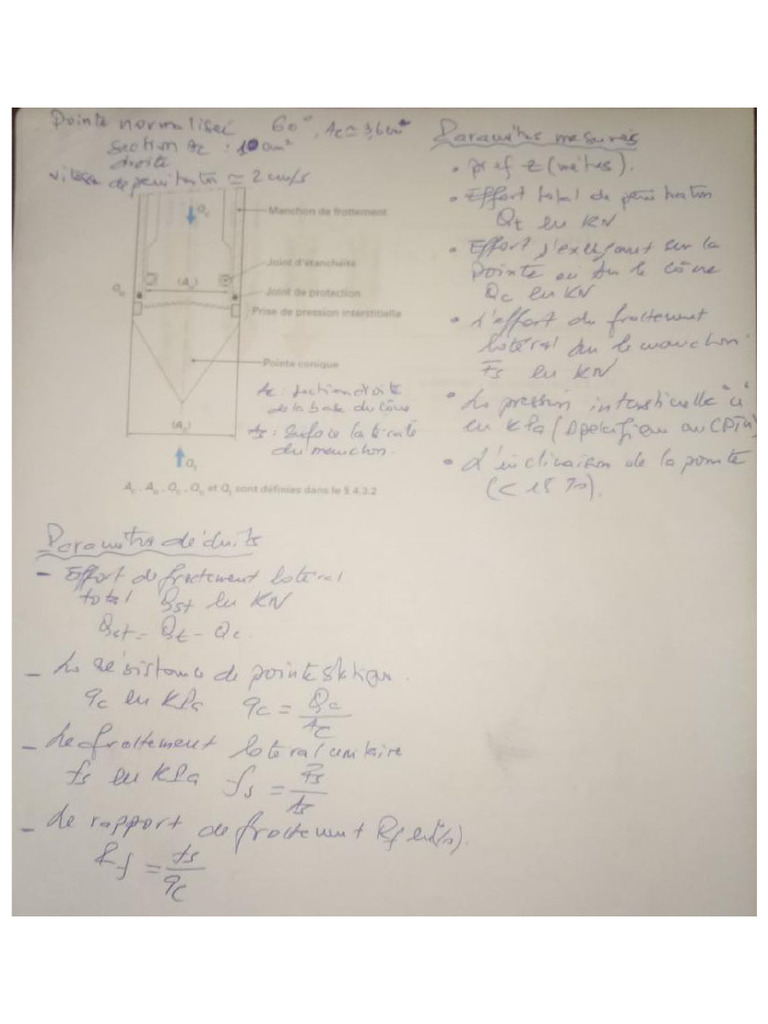 Pointe normalisée 60°, Ac ≃ 3,6 cm
Section Ac : 10 cm²
droite
vitesse de penetration ≃ 2 cm/s
Qc
Manchon de frottement
Joint d'étanchéité
(An)
Joint de protection
Prise de pression interstitielle
Pointe conique
Ac : Section droite
de la base du cône
As : Surface laterale
du manchon.
(Ac)
Qt
Ac, An, Qc, Qn et Qt sont définies dans le § 4.3.2
Paramètres mesurés
• prof z (mètres).
• Effort total de pénétration
Qt en KN
• Effort s'exerçant sur la
pointe ou sur le cône
Qc en KN
• L'effort du frottement
latéral sur le manchon
Fs en KN
• La pression interstitielle "u"
en KPa (Spécifique au CPTu)
• L'inclinaison de la pointe
(< 15 %).
Paramètres déduits
- Effort de frottement latéral
total Qst en KN
Qst = Qt - Qc
- La résistance de pointe statique.
qc en KPa qc = Qc / Ac
- Le frottement latéral unitaire
fs en KPa fs = Fs / As
- Le rapport de frottement Rf en (%).
Rf = fs / qc